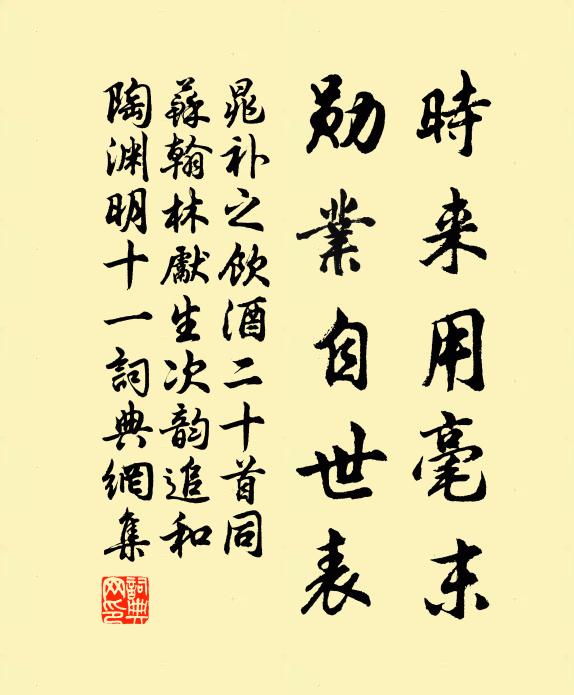 時來用毫末
勛業自世表
晁补之飲酒二十首同
蘇翰林獻生次韵追和
陶渊明十一詞典網集
詞典网印